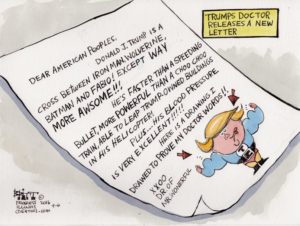 TRUMPS DOCTOR
RELEASES A NEW
LETTER
DEAR AMERICAN PEOPLES,
DONALD J. TRUMP IS A
CROSS BETWEEN IRON MAN, WOLVERINE,
BATMAN AND FABIO! EXCEPT WAY
MORE AWSOME!!!
HE'S FASTER THAN A SPEEDING
BULLET, MORE POWERFUL THAN A CHOO CHOO
TRAIN, ABLE TO LEAP TRUMP-OWNED BUILDINGS
IN HIS HELICOPTER!
PLUS... HIS BLOOD PRESSURE
IS VERY EXCELLENT!!!!
HERE IS A DRAWING I
DRAWED TO PROVE MY DOCTOR WORDS!!
XXOO
DR OF
MR WONDERFUL